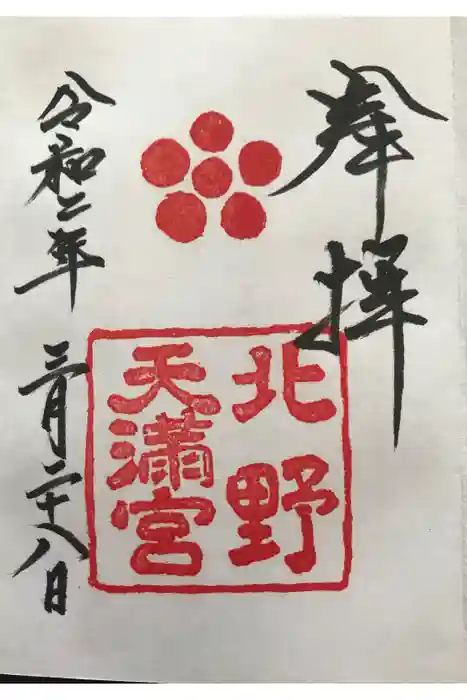 奉拝
北野
天満宮
令和二年 二月二十八日